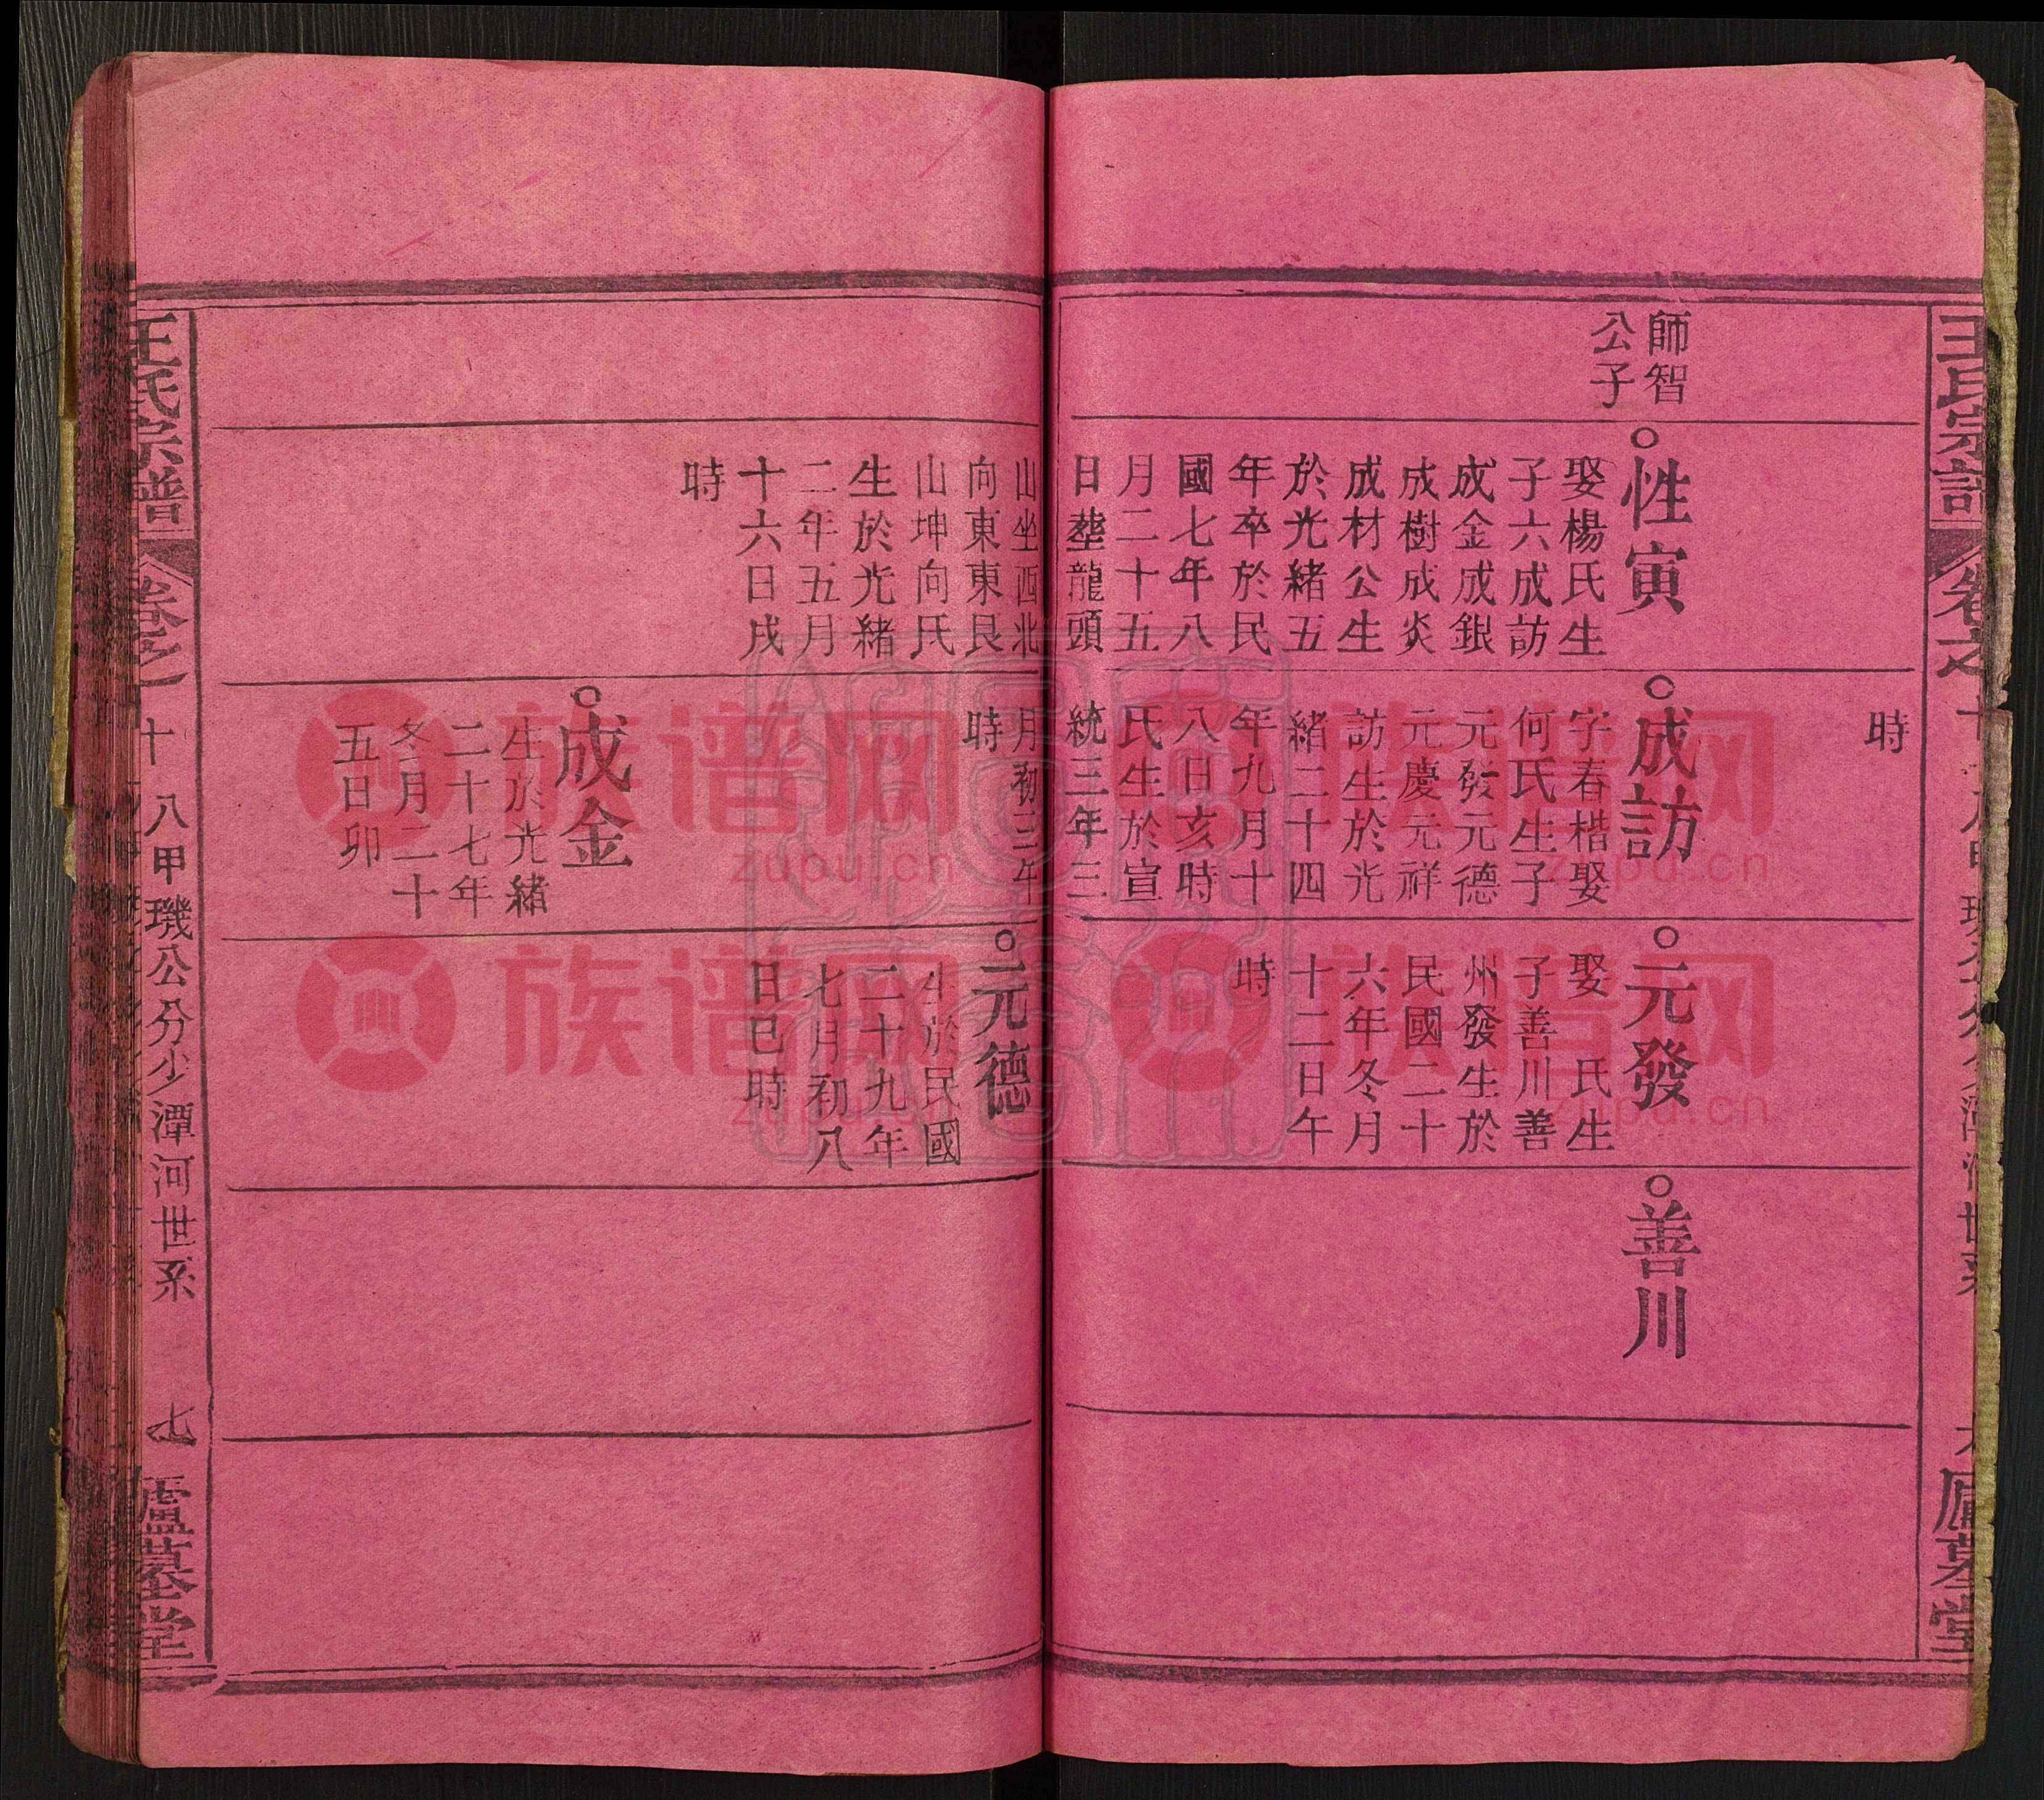 時
師智
公子
性寅
娶楊氏生
子六成訪
成金成銀
成樹成炎
成材公生
於光緒五
年卒於民
國七年八
月二十五
日塟龍頭
成訪
字春楷娶
何氏生子
元發元德
元慶元祥
訪生於光
緒二十四
年九月十
八日亥時
氏生於宣
統三年三
元發
娶　氏生
子善川善
州發生於
民國二十
六年冬月
十二日午
時
善川
山坐西北
向東東艮
山坤向氏
生於光緒
二年五月
十六日戌
時
月初三午
時
成金
生於光緒
二十七年
冬月二十
五日卯
元德
生於民國
二十九年
七月初八
日巳時
王氏宗譜
卷之十
八甲璣公分少潭河世系
七
廬墓堂
族谱网
zupu.cn
族谱网
zupu.cn
族谱网
zupu.cn
族谱网
zupu.cn